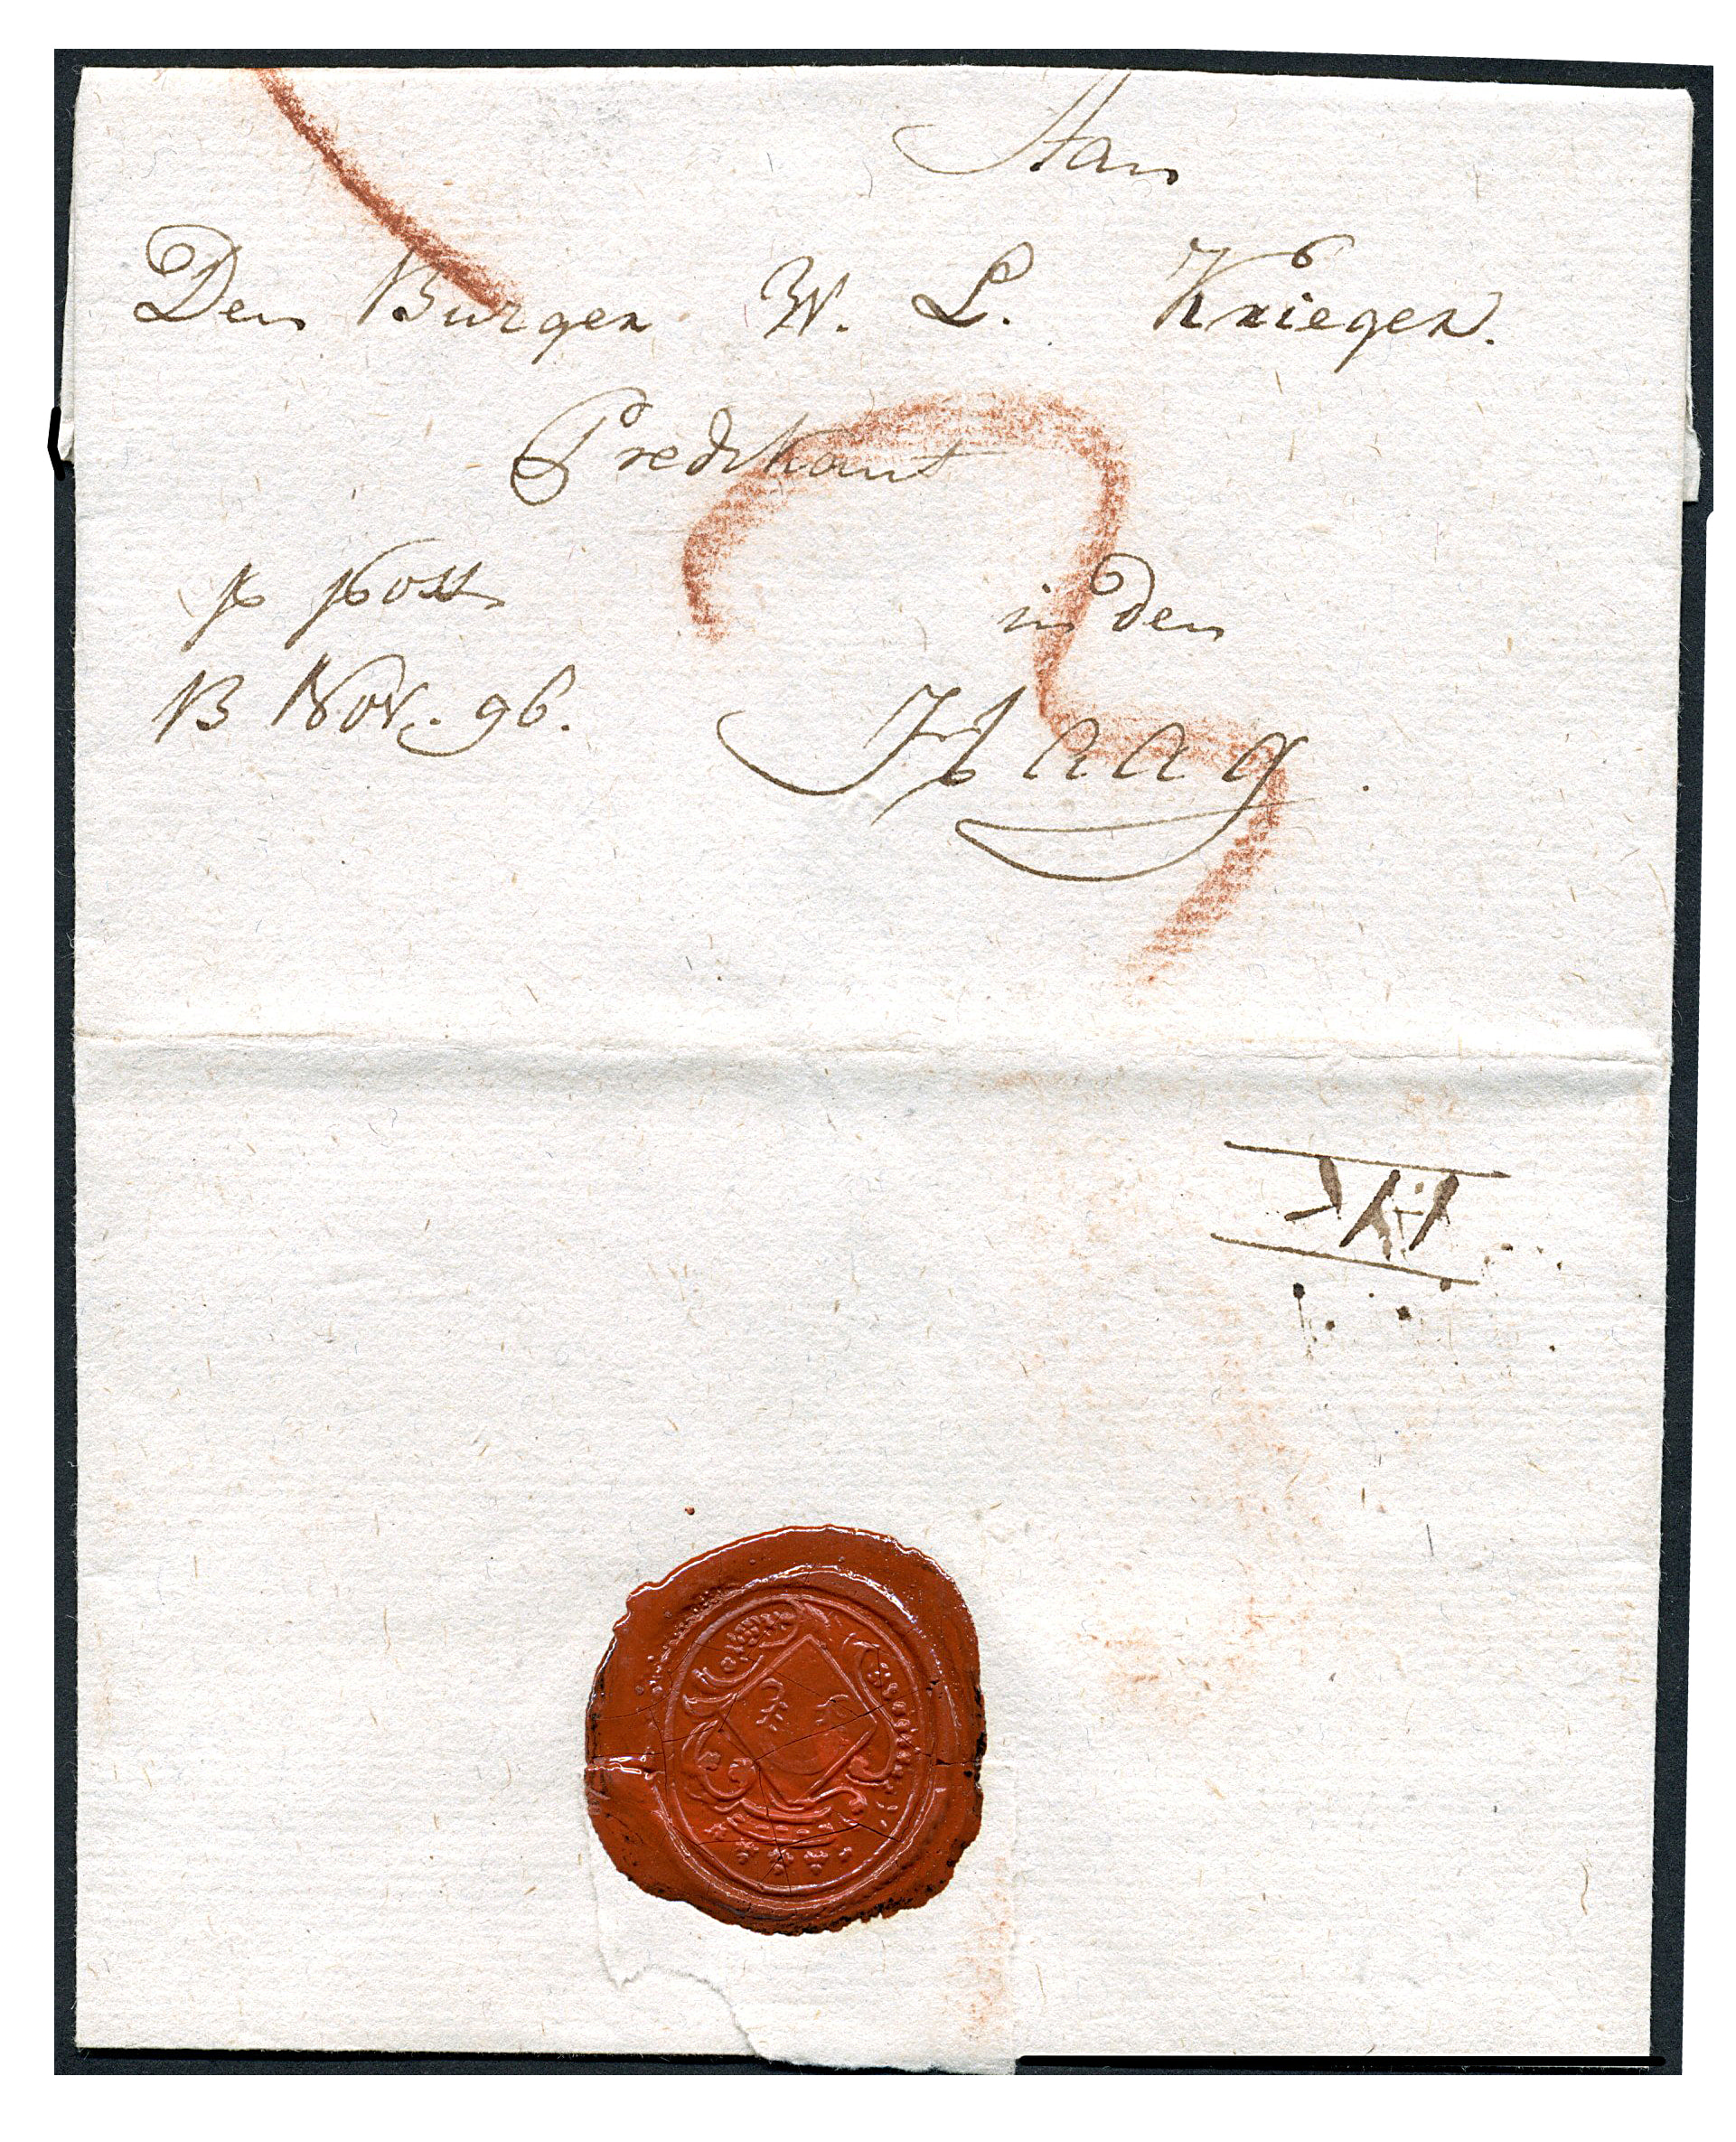 Aan
Den Burger W. L. Krieger.
Predikant
p post
in den
13 Nov. 96.
Haag.